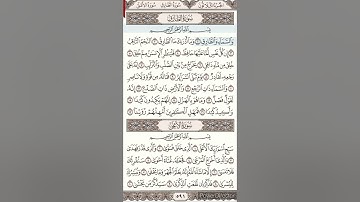 الجزء الثلاثون سورة الطارق سورة الأعلى
سُورَةُ الطَّارِقِ
بِسْمِ اللَّهِ الرَّحْمَٰنِ الرَّحِيمِ
وَالسَّمَاءِ وَالطَّارِقِ ١ وَمَا أَدْرَاكَ مَا الطَّارِقُ ٢ النَّجْمُ الثَّاقِبُ
٣ إِن كُلُّ نَفْسٍ لَّمَّا عَلَيْهَا حَافِظٌ ٤ فَلْيَنظُرِ الْإِنسَانُ مِمَّ خُلِقَ ٥
خُلِقَ مِن مَّاءٍ دَافِقٍ ٦ يَخْرُجُ مِن بَيْنِ الصُّلْبِ وَالتَّرَائِبِ ٧ إِنَّهُ عَلَىٰ
رَجْعِهِ لَقَادِرٌ ٨ يَوْمَ تُبْلَى السَّرَائِرُ ٩ فَمَا لَهُ مِن قُوَّةٍ وَلَا نَاصِرٍ
١٠ وَالسَّمَاءِ ذَاتِ الرَّجْعِ ١١ وَالْأَرْضِ ذَاتِ الصَّدْعِ ١٢ إِنَّهُ لَقَوْلٌ
فَصْلٌ ١٣ وَمَا هُوَ بِالْهَزْلِ ١٤ إِنَّهُمْ يَكِيدُونَ كَيْدًا ١٥
وَأَكِيدُ كَيْدًا ١٦ فَمَهِّلِ الْكَافِرِينَ أَمْهِلْهُمْ رُوَيْدًا ١٧
سُورَةُ الْأَعْلَىٰ
بِسْمِ اللَّهِ الرَّحْمَٰنِ الرَّحِيمِ
سَبِّحِ اسْمَ رَبِّكَ الْأَعْلَى ١ الَّذِي خَلَقَ فَسَوَّىٰ ٢ وَالَّذِي قَدَّرَ فَهَدَىٰ
٣ وَالَّذِي أَخْرَجَ الْمَرْعَىٰ ٤ فَجَعَلَهُ غُثَاءً أَحْوَىٰ ٥ سَنُقْرِئُكَ
فَلَا تَنسَىٰ ٦ إِلَّا مَا شَاءَ اللَّهُ إِنَّهُ يَعْلَمُ الْجَهْرَ وَمَا يَخْفَىٰ ٧ وَنُيَسِّرُكَ
لِلْيُسْرَىٰ ٨ فَذَكِّرْ إِن نَّفَعَتِ الذِّكْرَىٰ ٩ سَيَذَّكَّرُ مَن يَخْشَىٰ ١٠
٥٩١